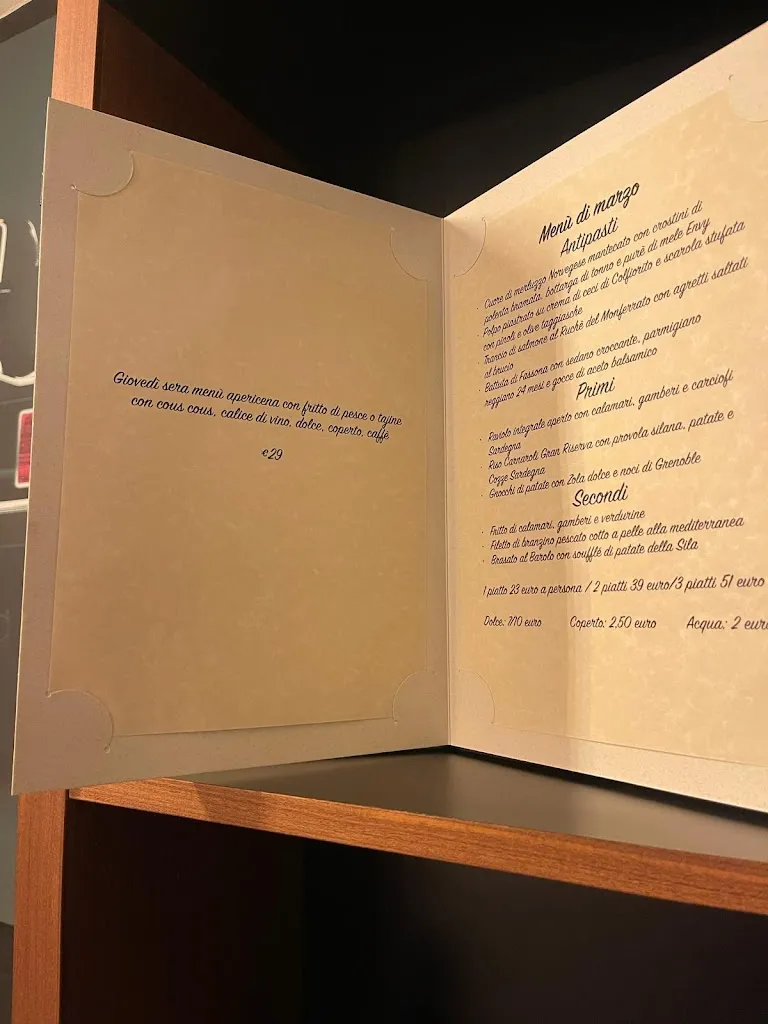 Giovedì sera menù apericena con fritto di pesce o tajine
con cous cous, calice di vino, dolce, coperto, caffè
€29
Menù di marzo
Antipasti
· Cuore di merluzzo Norvegese mantecato con crostini di
polenta bramata, bottarga di tonno e purè di mele Envy
· Polpo piastrato su crema di ceci di Colfiorito e scarola stufata
con pinoli e olive taggiasche
· Trancio di salmone al Ruchè del Monferrato con agretti saltati
al burcio
· Battuta di Fassona con sedano croccante, parmigiano
reggiano 24 mesi e gocce di aceto balsamico
Primi
· Raviolo integrale aperto con calamari, gamberi e carciofi
Sardegna
· Riso Carnaroli Gran Riserva con provola silana, patate e
Cozze Sardegna
· Gnocchi di patate con Zola dolce e noci di Grenoble
Secondi
· Fritto di calamari, gamberi e verdurine
· Filetto di branzino pescato cotto a pelle alla mediterranea
· Brasato al Barolo con soufflé di patate della Sila
1 piatto 23 euro a persona / 2 piatti 39 euro/3 piatti 51 euro
Dolce: 7/10 euro Coperto: 2,50 euro Acqua: 2 euro